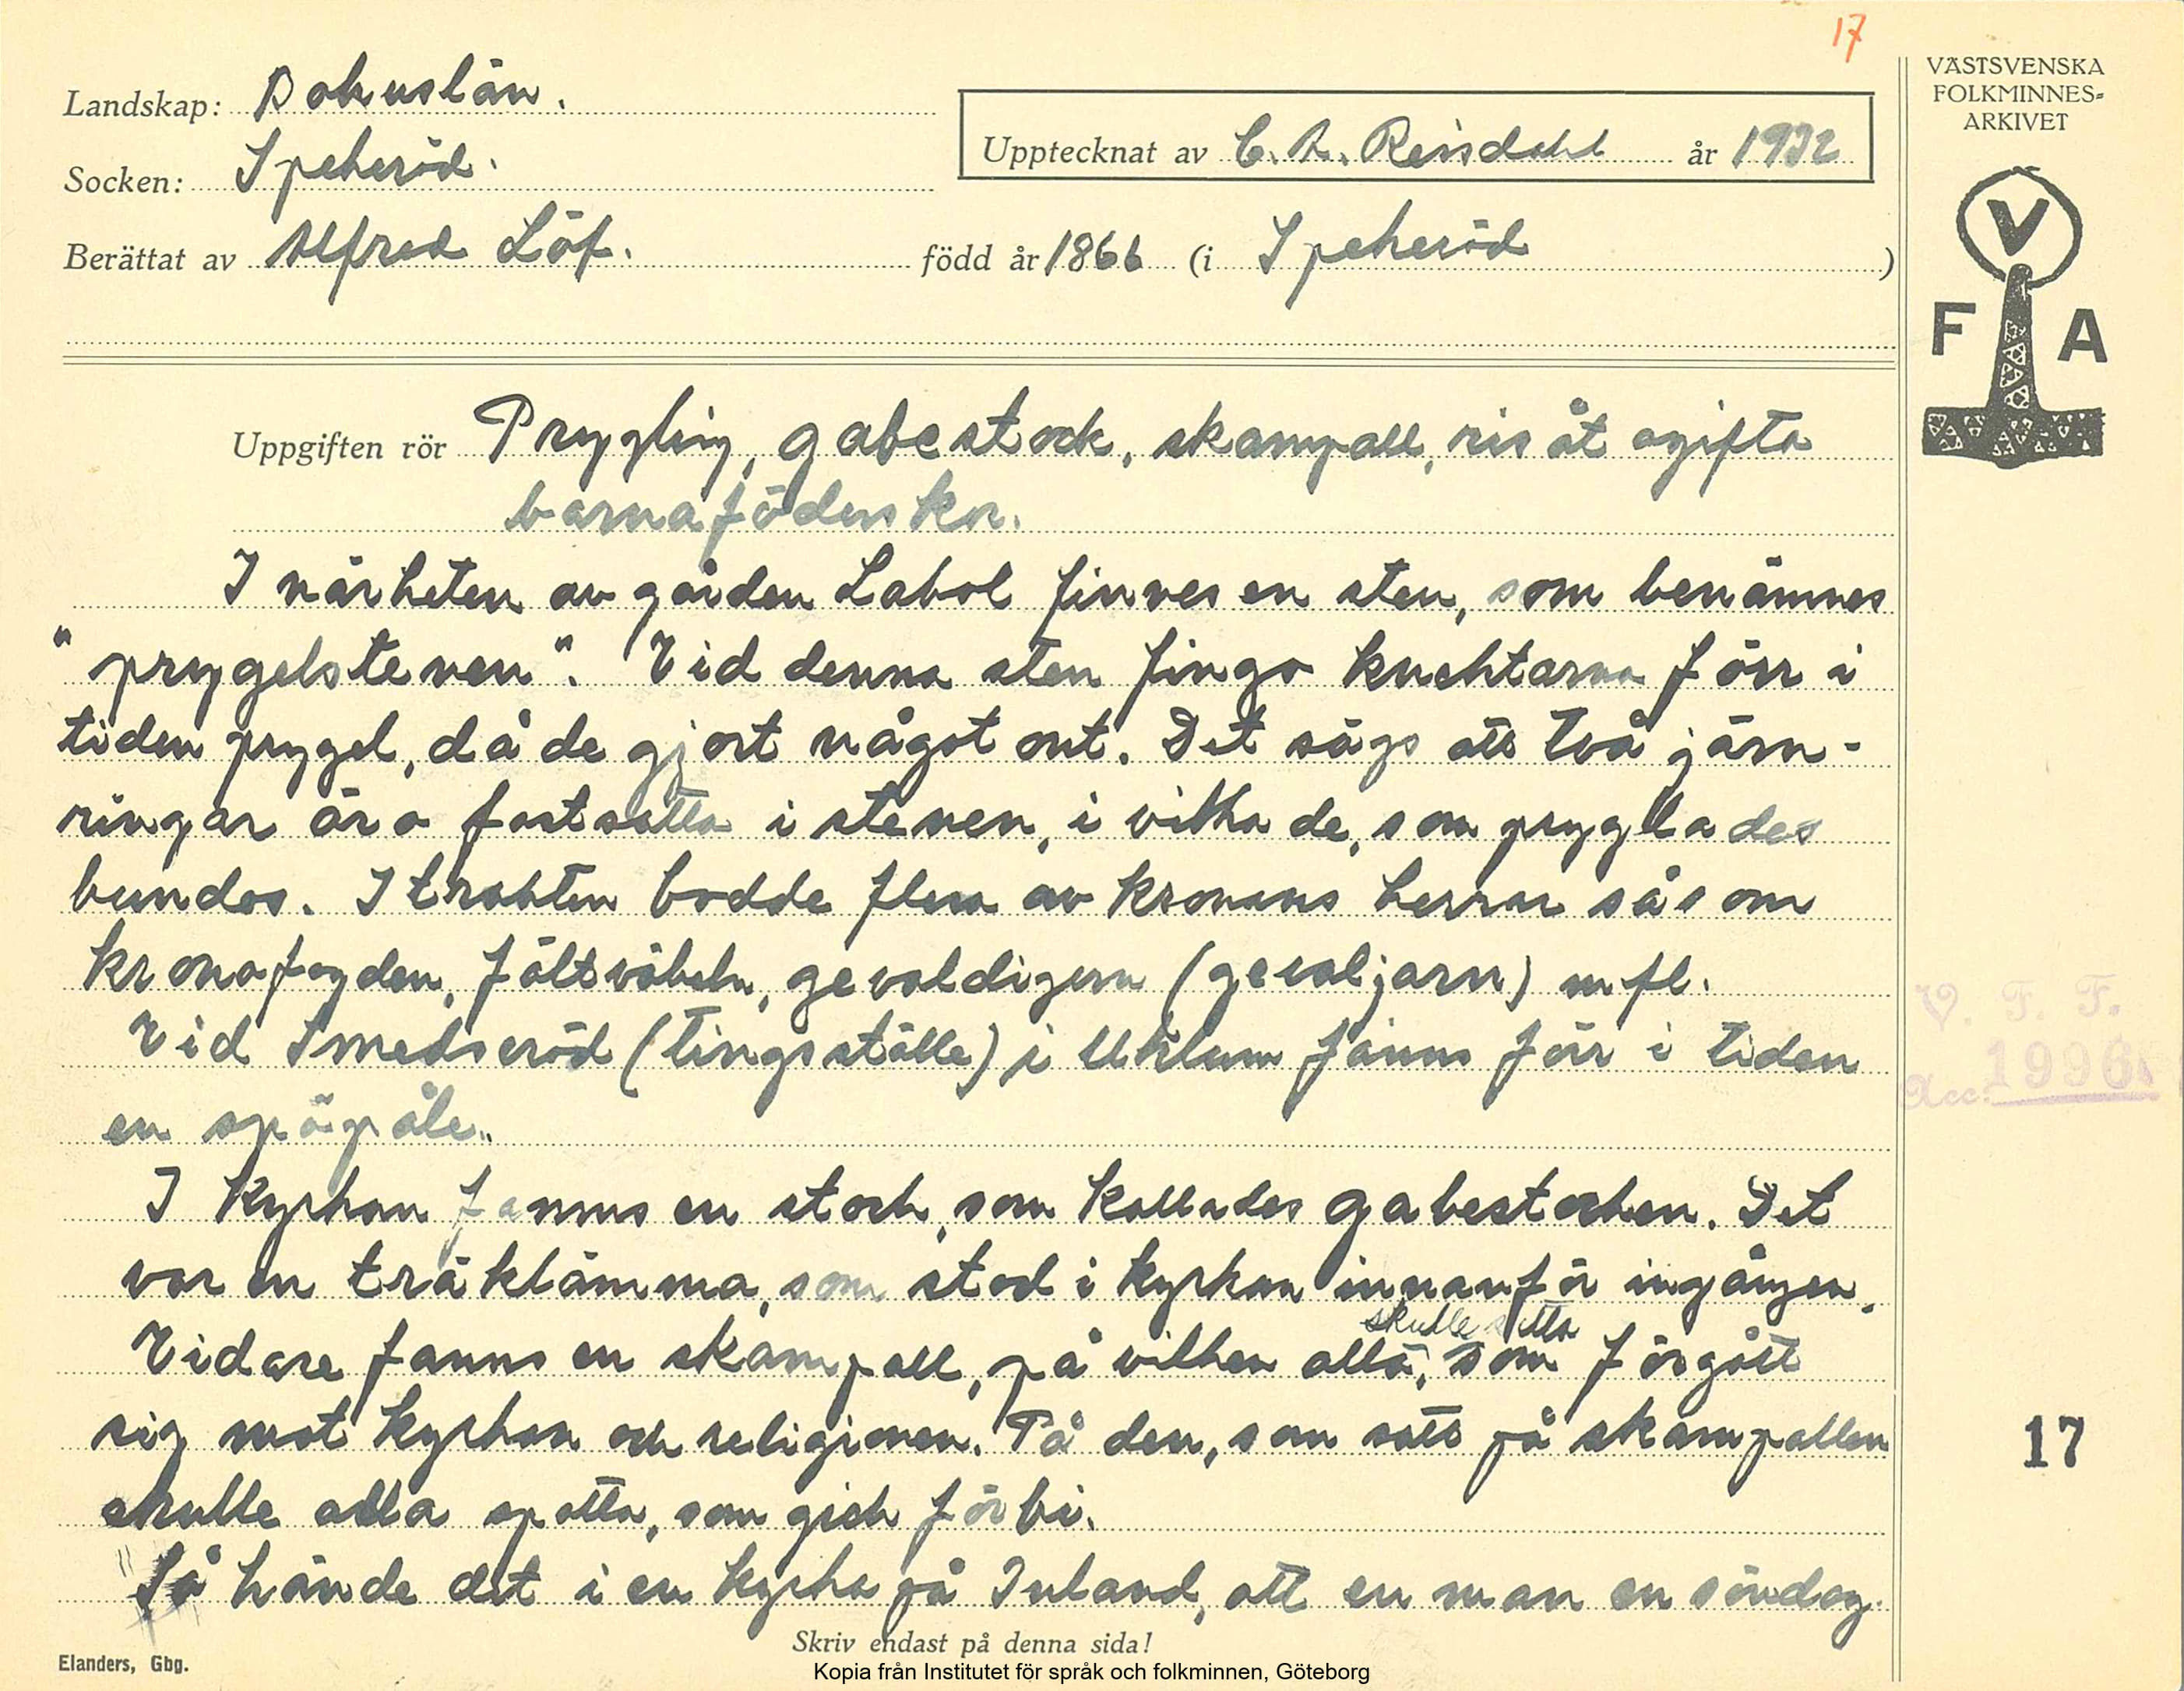 17
VÄSTSVENSKA
FOLKMINNES=
ARKIVET
Landskap: Bohuslän.
Upptecknat av C. A. Reisdahl år 1932
Socken: Spekeröd.
Berättat av Alfred Löf. född år 1866 (i Spekeröd)
V
F A
Uppgiften rör Prygling, gabestock, skampall, ris åt ogifta
barnaföderskor.
I närheten av gården Labol finnes en sten, som benämnes
"prygelstenen". Vid denna sten fingo knektarna förr i
tiden prygel, då de gjort något ont. Det sägs att två järn-
ringar äro fastsatta i stenen, i vilka de, som pryglades
bundos. I trakten bodde flera av kronans herrar såsom
kronofogden, fältväbeln, gevaldigern (gevaljarn) m fl.
Vid Smedseröd (tingsställe) i Uklum fanns förr i tiden
en spöpåle.
I kyrkan fanns en stock, som kallades gabestocken. Det
var en träklämma, som stod i kyrkan innanför ingången.
skulle sitta
Vidare fanns en skampall, på vilken alla, som förgått
sig mot kyrkan och religionen. På den, som satt på skampallen
skulle alla spotta, som gick förbi.
Så hände det i en kyrka på Inland, att en man en söndag
V. F. F.
Acc. 1996.
17
Skriv endast på denna sida!
Elanders, Gbg.
Kopia från Institutet för språk och folkminnen, Göteborg